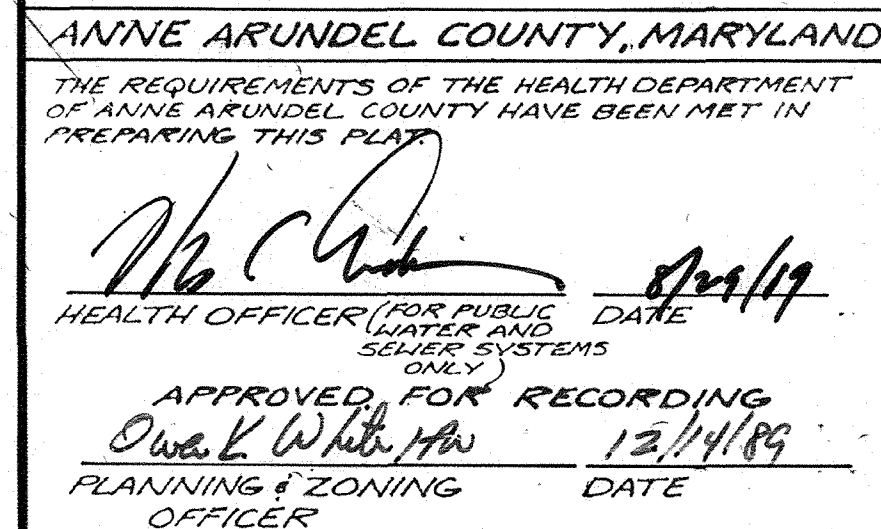 ANNE ARUNDEL COUNTY, MARYLAND
THE REQUIREMENTS OF THE HEALTH DEPARTMENT
OF ANNE ARUNDEL COUNTY HAVE BEEN MET IN
PREPARING THIS PLAT.
8/29/19
HEALTH OFFICER (FOR PUBLIC DATE
WATER AND
SEWER SYSTEMS
ONLY)
APPROVED FOR RECORDING
Owen K White 12/14/89
PLANNING & ZONING DATE
OFFICER